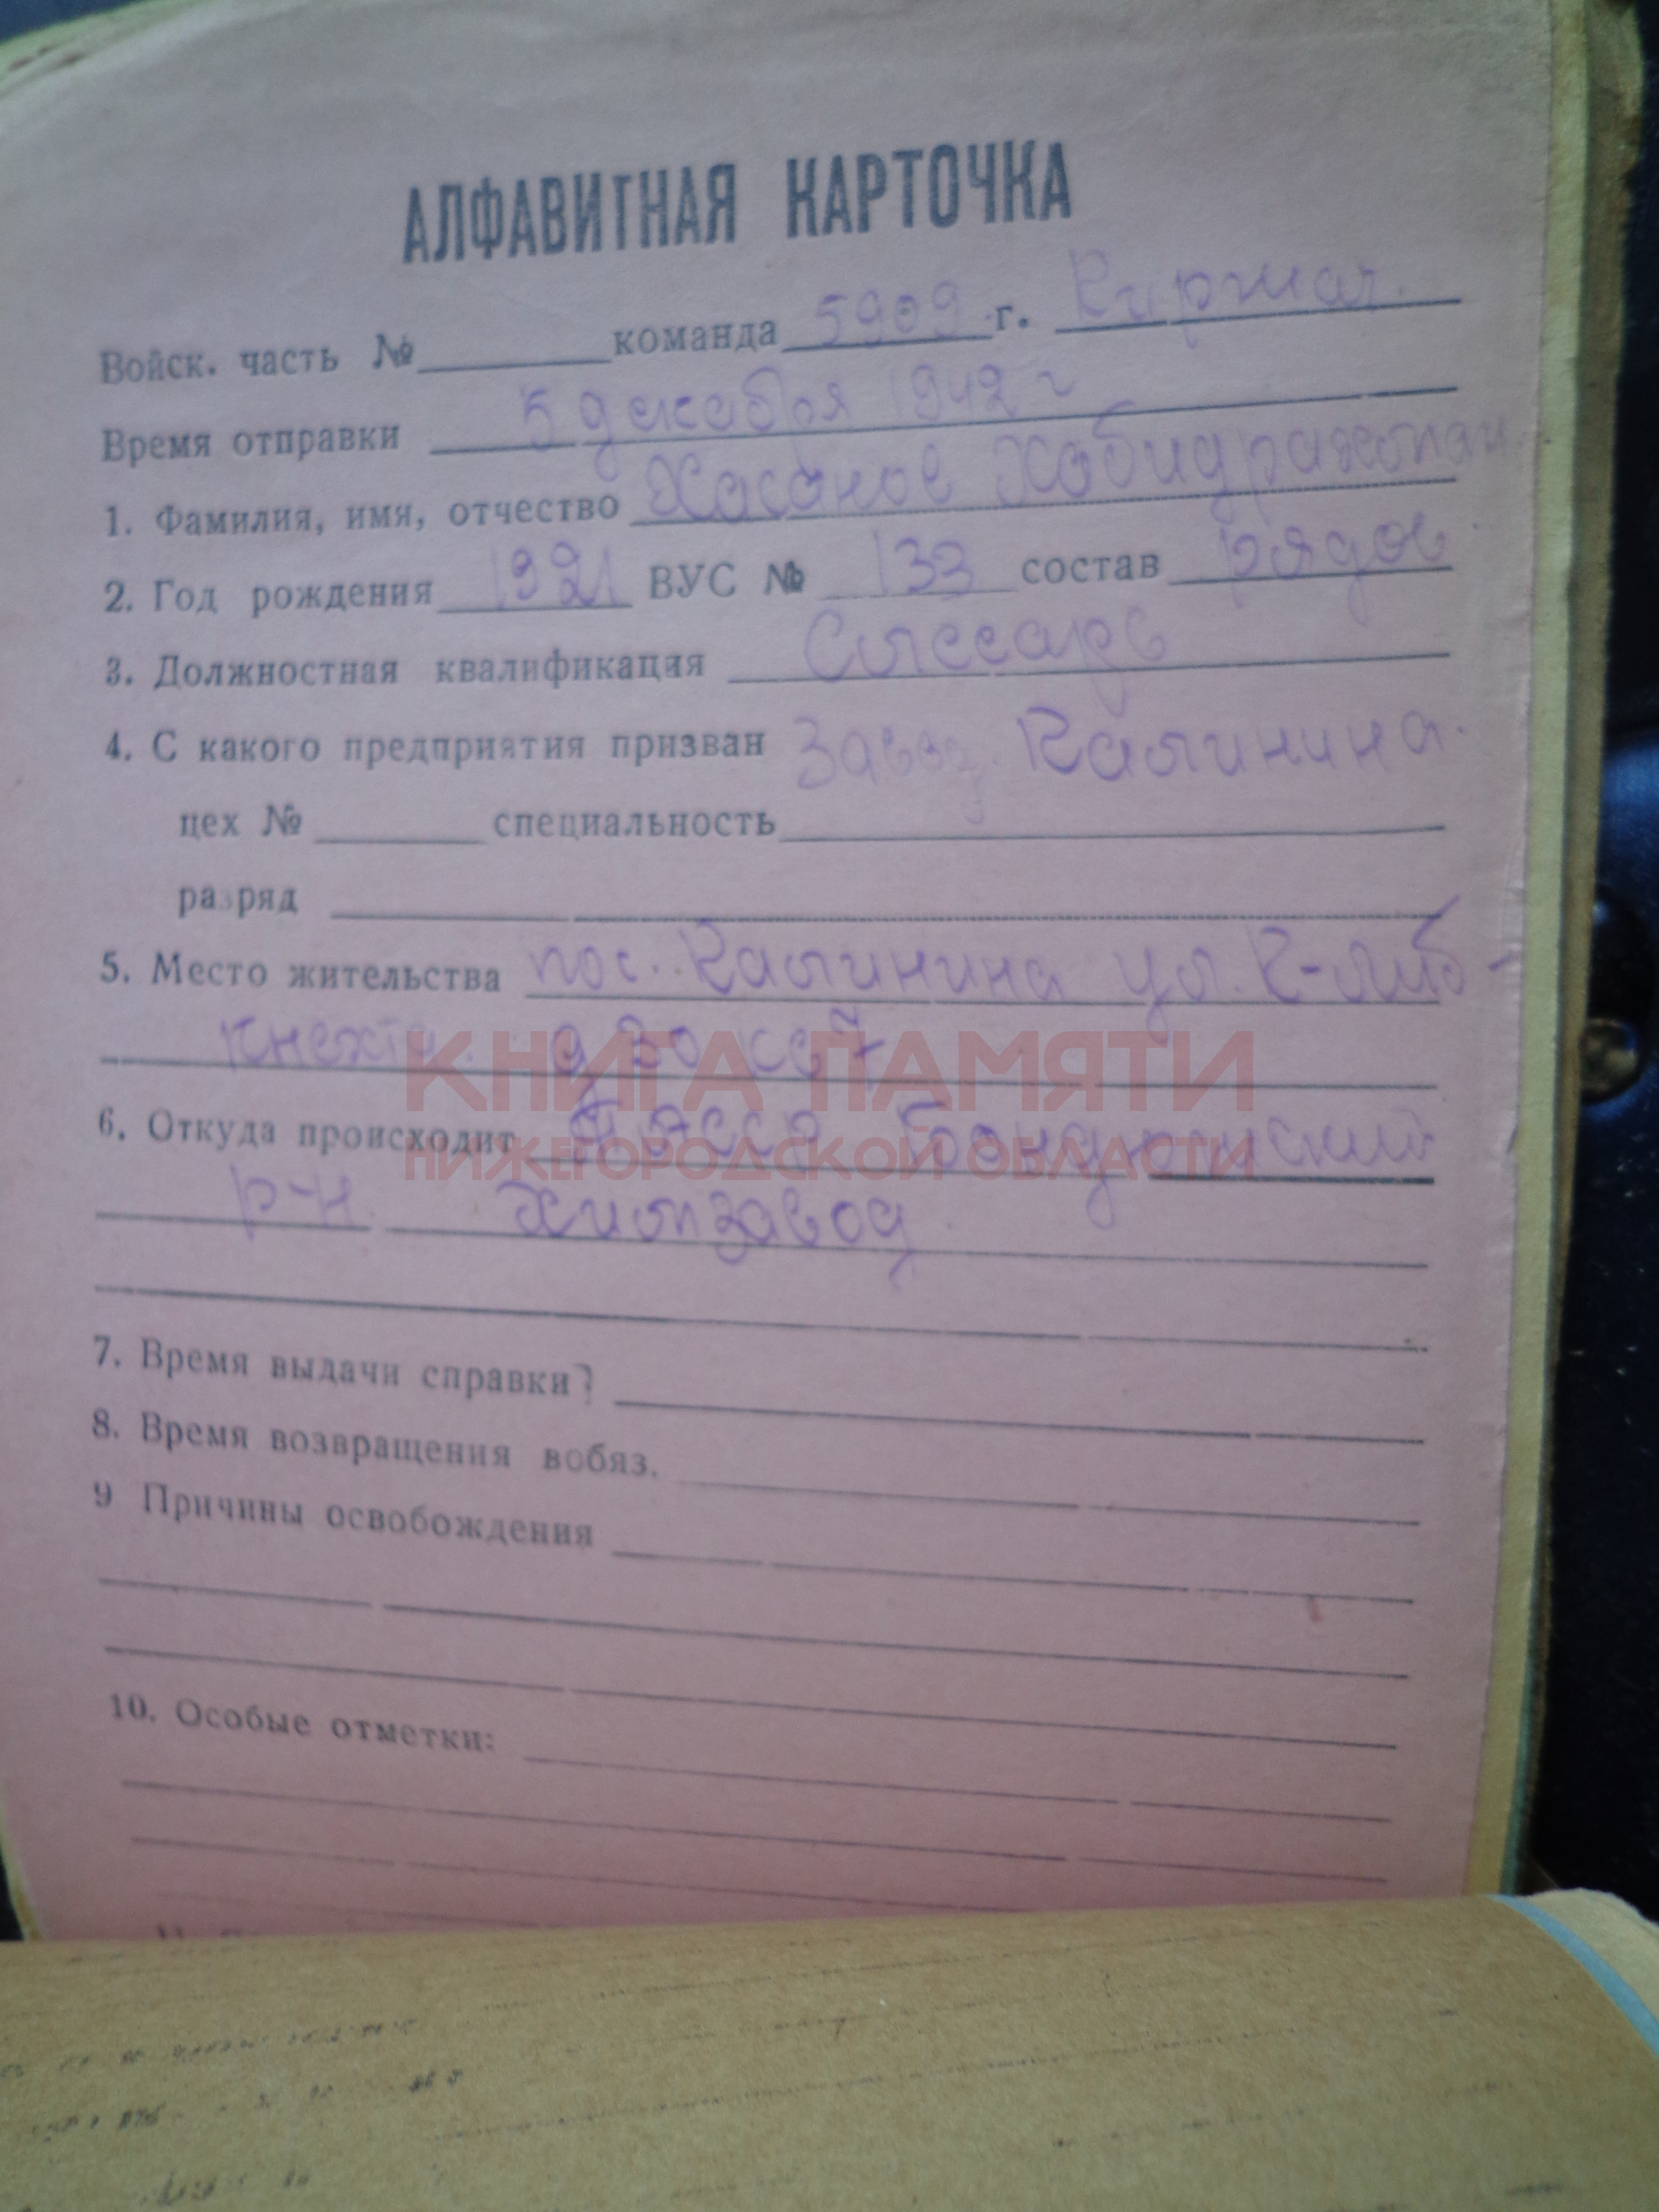 АЛФАВИТНАЯ КАРТОЧКА
Войск. часть № команда 5909 г. Киржач.
Время отправки 5 декабря 1942 г
1. Фамилия, имя, отчество Хасанов
2. Год рождения 1921 ВУС № 133 состав рядов.
3. Должностная квалификация Слесарь
4. С какого предприятия призван Завод. Калинина.
цех № специальность
разряд
5. Место жительства пос. Калинина ул. К-Либ-
кнехта
КНИГА ПАМЯТИ
6. Откуда происходит ТАССР Бондюжский
НИЖЕГОРОДСКОЙ ОБЛАСТИ
р-н. Химзавод.
7. Время выдачи справки
8. Время возвращения вобяз.
9 Причины освобождения
10. Особые отметки: